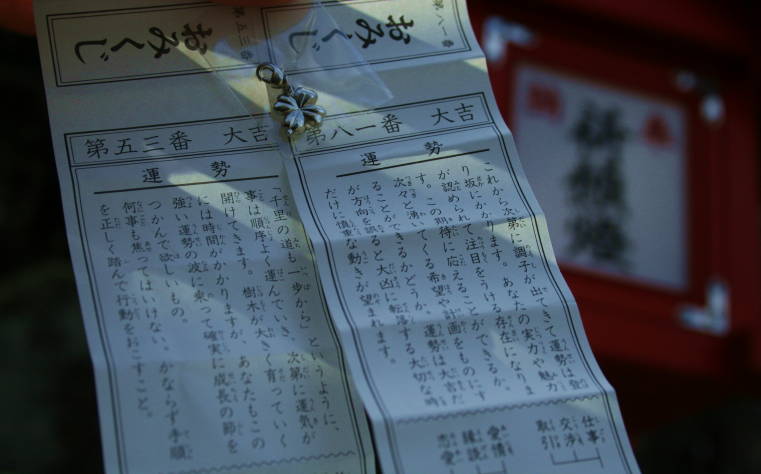 第八一番
おみくじ
第五三番
おみくじ
第八一番 大吉
運勢
これから次第に調子が出てきて運勢は登
り坂にかかります。あなたの実力や魅力
が認められて注目をうける存在になりま
す。この期待に応えることができるか。
次々と湧いてくる希望や計画をものにす
ることができるかどうか。運勢は大吉だ
が方向を誤ると大凶に転落する大切な時
だけに慎重な動きが望まれます。
仕事
交渉
取引
愛情
縁談
恋愛
第五三番 大吉
運勢
「千里の道も一歩から」というように、
事は順序よく運んでいき、次第に運気が
開けてきます。樹木が大きく育っていく
には時間がかかりますが、あなたもこの
強い運勢の波に乗って確実に成長の節を
つかんで欲しいもの。
何事も焦ってはいけない。かならず手順
を正しく踏んで行動をおこすこと。
奉
祈願